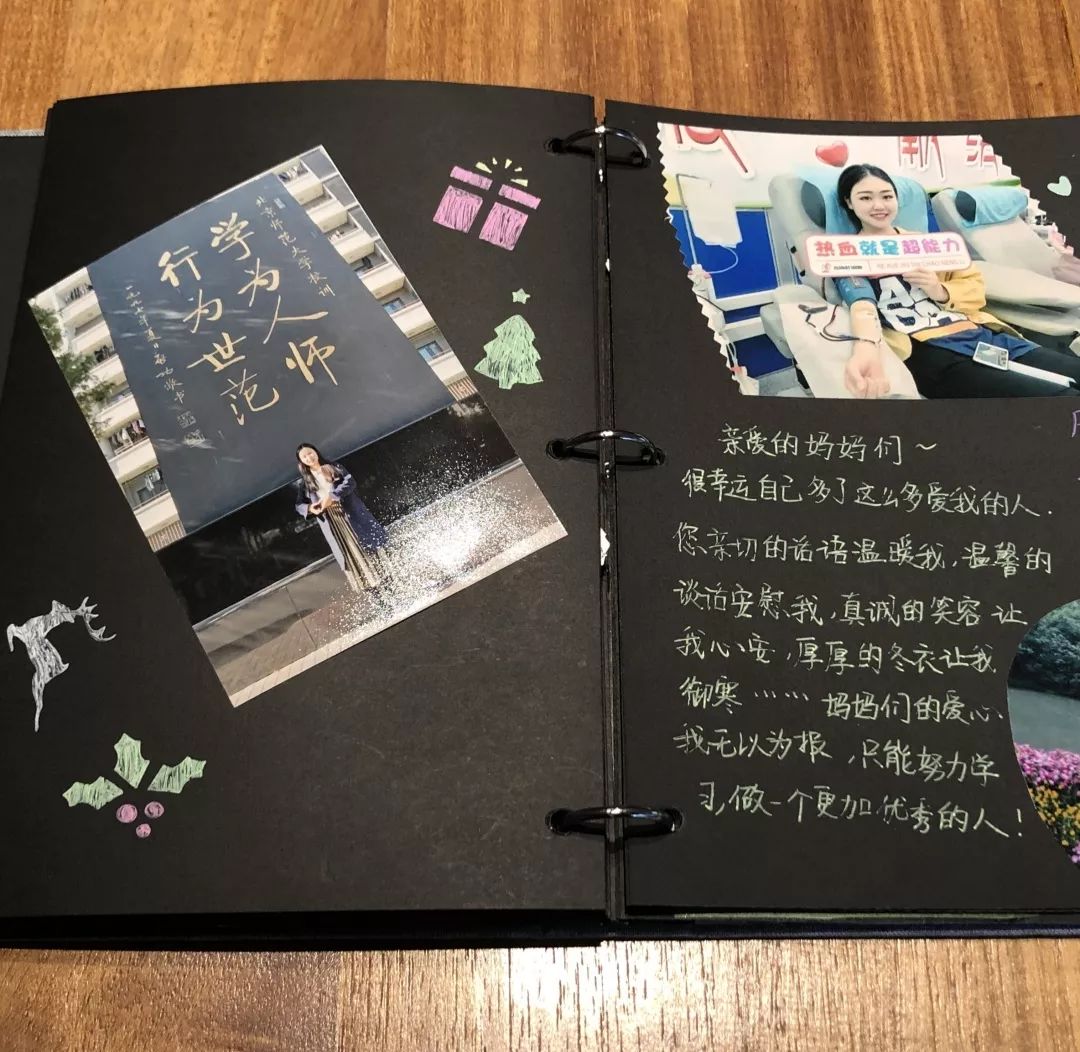 北京师范大学校训
学为人师
行为世范
热血就是超能力
RE XUE JIU SHI CHAO NENG LI
亲爱的妈妈们~
很幸运自己多了这么多爱我的人.
您亲切的话语温暖我,温馨的
谈话安慰我,真诚的笑容让
我心安,厚厚的冬衣让我
御寒……妈妈们的爱心
我无以为报,只能努力学
习,做一个更加优秀的人!